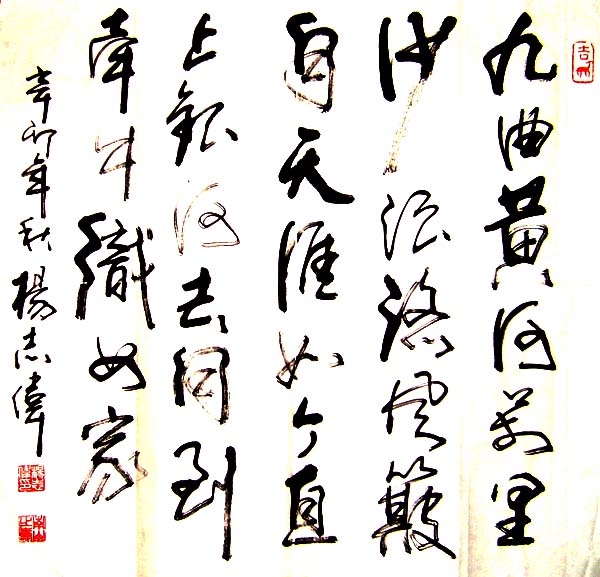 九曲黄河萬里
沙浪淘风簸
自天涯如今直
上银河去同到
牵牛織女家
辛卯年秋楊志偉